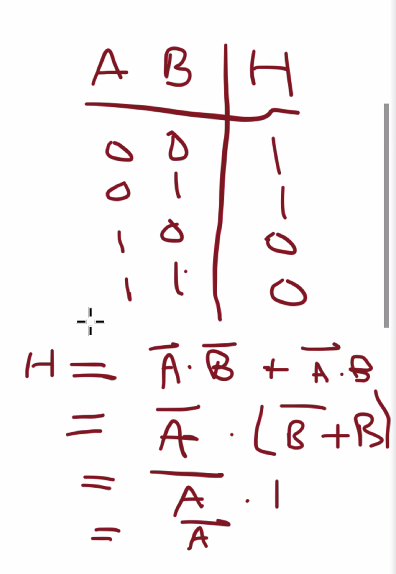 A B H
0 0 1
0 1 1
1 0 0
1 1 0
H = A̅·B̅ + A̅·B
= A̅ · (B̅ + B)
= A̅ · 1
= A̅